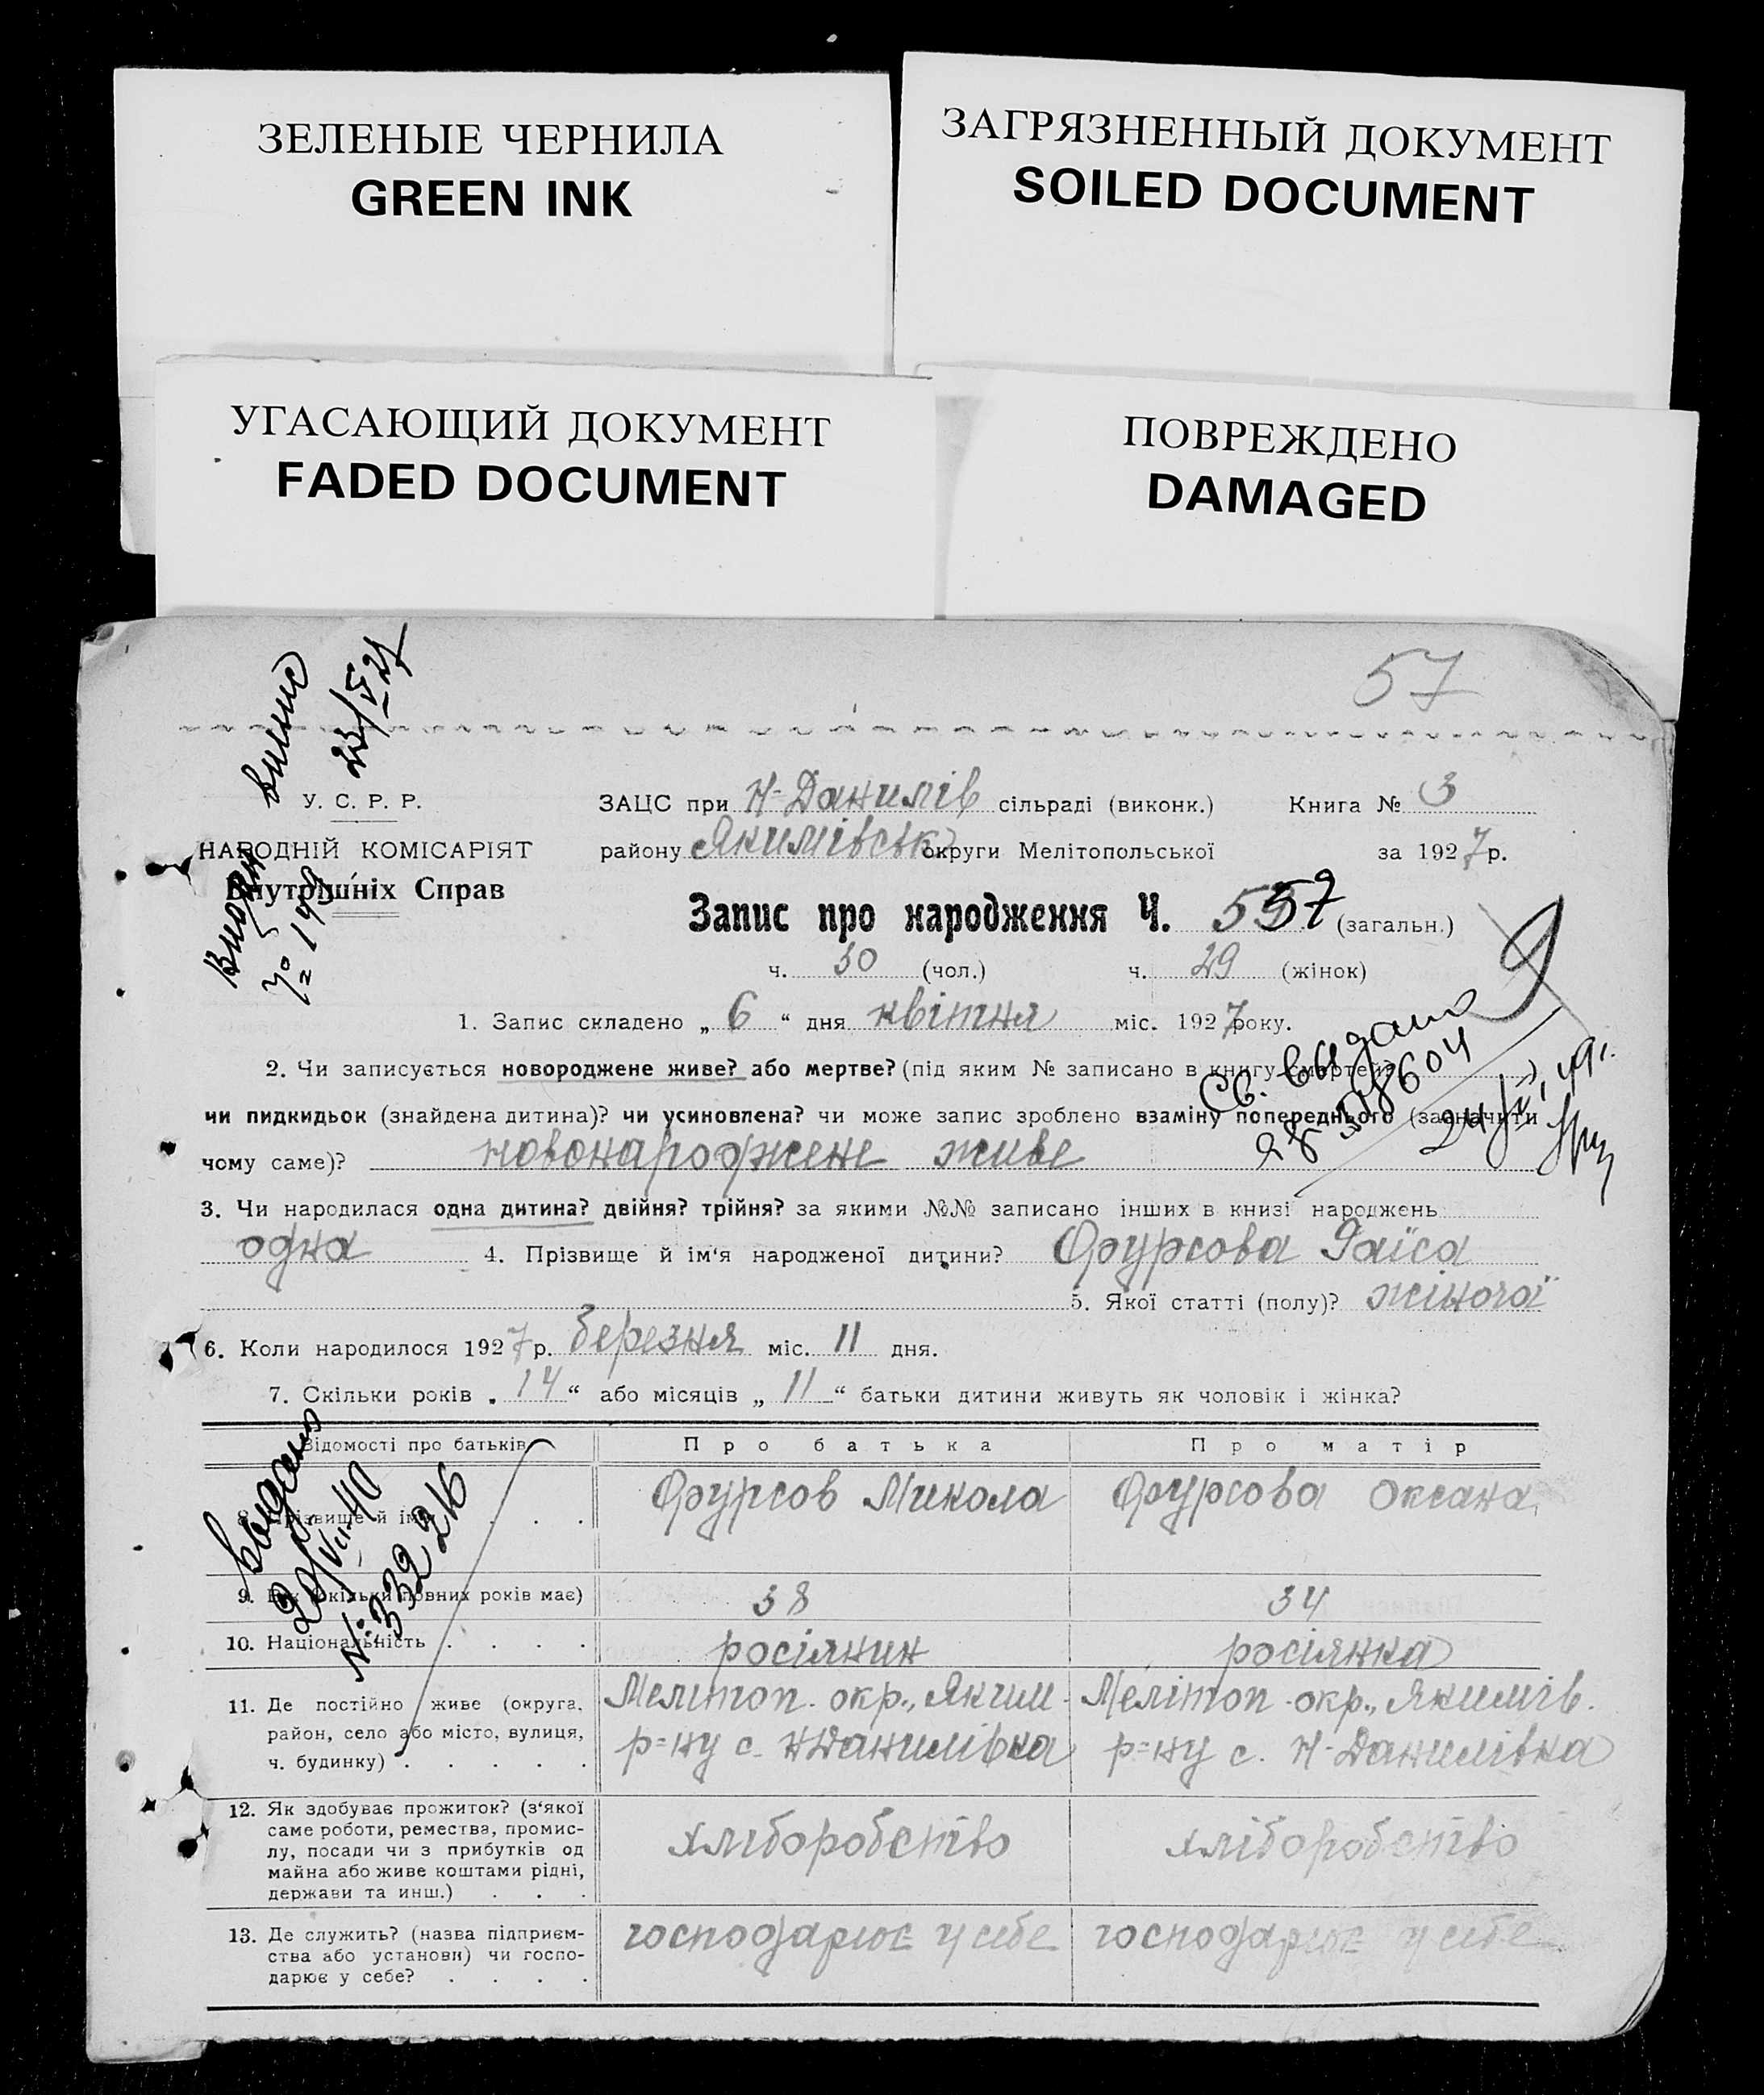 ЗЕЛЕНЫЕ ЧЕРНИЛА
GREEN INK
ЗАГРЯЗНЕННЫЙ ДОКУМЕНТ
SOILED DOCUMENT
УГАСАЮЩИЙ ДОКУМЕНТ
FADED DOCUMENT
ПОВРЕЖДЕНО
DAMAGED
57
У. С. Р. Р.
НАРОДНІЙ КОМІСАРІЯТ
Внутрішніх Справ
ЗАЦС при Н-Данилів сільраді (виконк.) Книга № 3
району Якимівськ округи Мелітопольської за 1927 р.
Запис про народження Ч. 57 (загальн.)
ч. 30 (чол.) ч. 29 (жінок)
1. Запис складено „ 6 “ дня квітня міс. 1927 року.
2. Чи записується новороджене живе? або мертве? (під яким № записано в книгу смертей)
чи пидкидьок (знайдена дитина)? чи усиновлена? чи може запис зроблено взаміну попереднього (зазначити
чому саме)? новонароджене живе
Св. выдано
24/II, 49 г.
3. Чи народилася одна дитина? двійня? трійня? за якими №№ записано інших в книзі народжень
одна 4. Прізвище й ім'я народженої дитини? Фурсова Раїса
5. Якої статті (полу)? жіночої
6. Коли народилося 1927 р. березня міс. 11 дня.
7. Скільки років „ 14 “ або місяців „ 11 “ батьки дитини живуть як чоловік і жінка?
Відомості про батьків Про батька Про матір
8. Прізвище й ім'я Фурсов Микола Фурсова Оксана
9. Вік (скільки повних років має) 38 34
10. Національність росіянин росіянка
11. Де постійно живе (округа, район, село або місто, вулиця, ч. будинку) Мелитоп. окр., Яким. р=ну с. Н Данилівка Мелітоп. окр., Якимів. р=ну с. Н-Данилівка
12. Як здобуває прожиток? (з'якої саме роботи, ремества, промислу, посади чи з прибутків од майна або живе коштами рідні, держави та инш.) хліборобство хліборобство
13. Де служить? (назва підприємства або установи) чи господарює у себе? господарює у себе господарює у себе
выдано
№ 332216